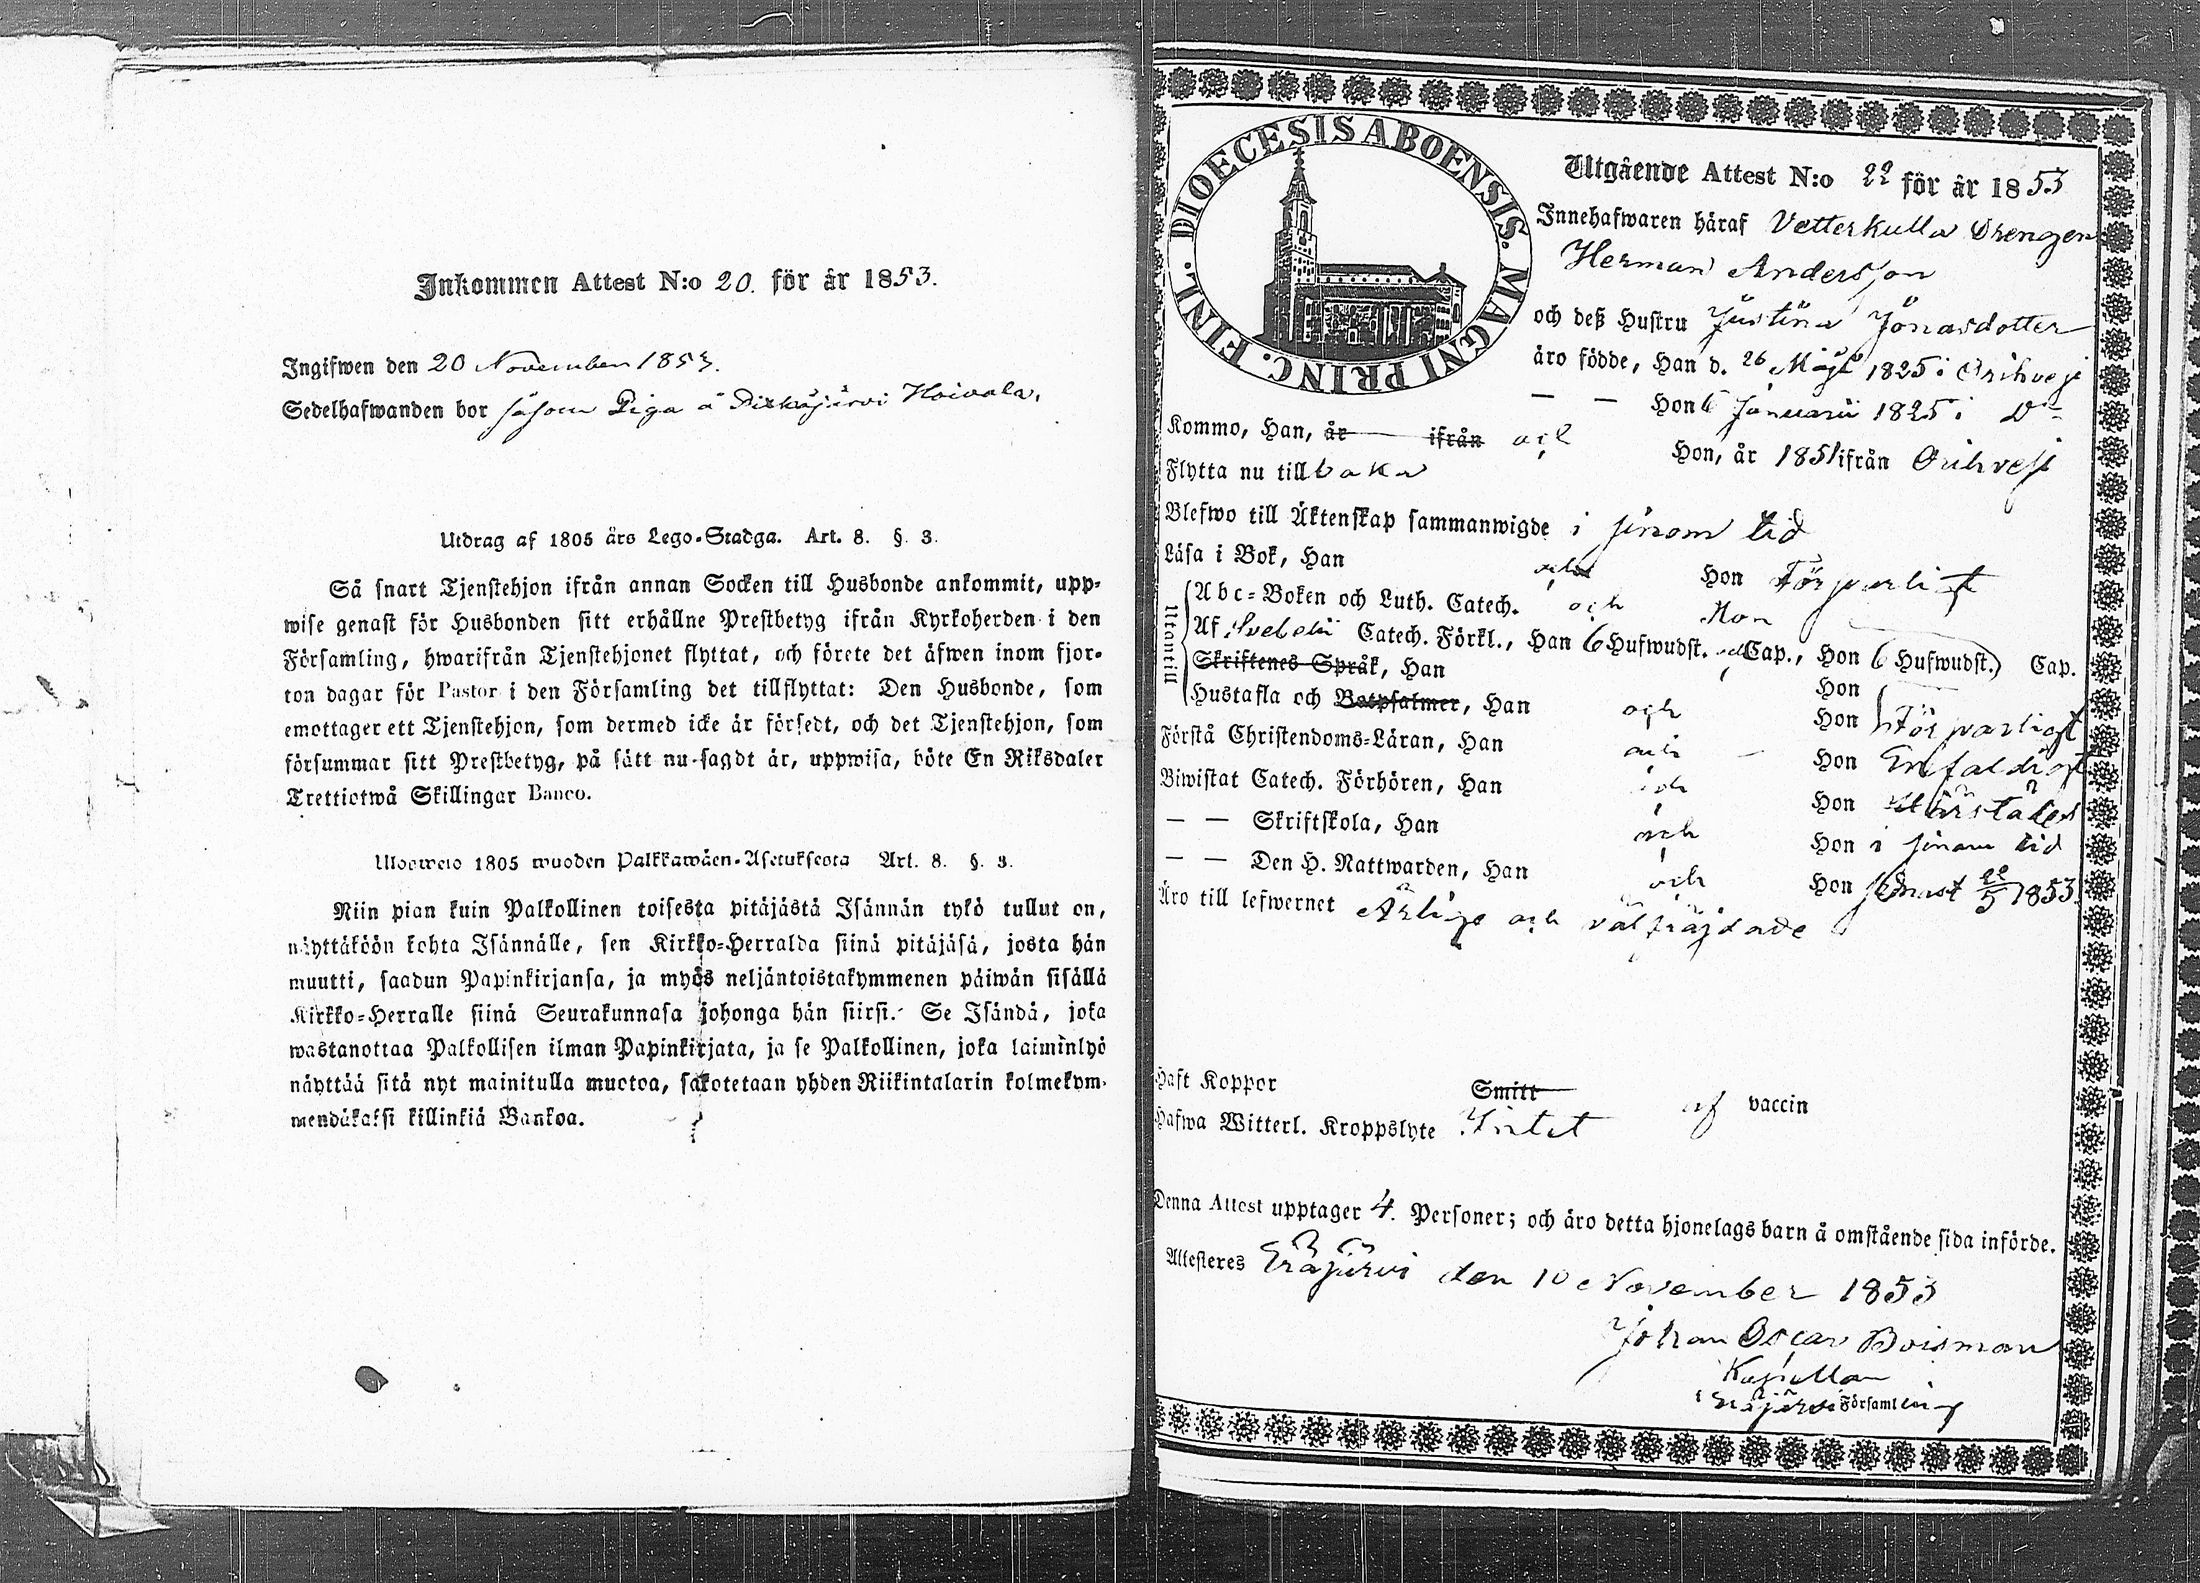 Inkommen Attest N:o 20. för år 1853.
Ingifwen den 20 November 1853.
Sedelhafwanden bor såsom Piga å Hoivala.
Utdrag af 1805 års Lego-Stadga. Art. 8. §. 3.
Så snart Tjenstehjon ifrån annan Socken till Husbonde ankommit, upp-
wise genast för Husbonden sitt erhållne Prestbetyg ifrån Kyrkoherden i den
Församling, hwarifrån Tjenstehjonet flyttat, och förete det äfwen inom fjor-
ton dagar för Pastor i den Församling det tillflyttat: Den Husbonde, som
emottager ett Tjenstehjon, som dermed icke är försedt, och det Tjenstehjon, som
försummar sitt Prestbetyg, på sätt nu sagdt är, uppwisa, böte En Riksdaler
Trettiotwå Skillingar Banco.
Ulosweto 1805 wuoden Palkkawäen-Asetuksesta Art. 8. §. 3.
Niin pian kuin Palkollinen toisesta pitäjästä Isännän tykö tullut on,
näyttäköön kohta Isännälle, sen Kirkko-Herralda siinä pitäjäsä, josta hän
muutti, saadun Papinkirjansa, ja myös neljäntoistakymmenen päiwän sisällä
Kirkko-Herralle siinä Seurakunnasa johonga hän siirsi. Se Isändä, joka
wastanottaa Palkollisen ilman Papinkirjata, ja se Palkollinen, joka laiminlyö
näyttää sitä nyt mainitulla muotoa, sakotetaan yhden Riikintalarin kolmekym-
mendäkaksi killinkiä Bankoa.
DIOECESIS ABOENSIS. MAGNI PRINC. FINL.
Utgående Attest N:o 22 för år 1853
Innehafwaren häraf Vetterkulla Drengen
Herman Andersson
och deß Hustru Justina Jonasdotter
äro födde, Han d. 26 Maji 1825 i Orihvesi
— — Hon 6 Januarii 1825 i Do
Kommo, Han, år ifrån och
Hon, år 1851 ifrån Orihvesi
Flytta nu tillbaka
Blefwo till Äktenskap sammanwigde i sinom tid
Läsa i Bok, Han och Hon Försvarligt
Utantill
Abc-Boken och Luth. Catech. och Hon
Af Svebelii Catech. Förkl., Han 6 Hufwudst. och Cap., Hon 6 Hufwudst. Cap.
Skriftenes Språk, Han Hon
Hustafla och Botpsalmer, Han och Hon Försvarligt
Förstå Christendoms-Läran, Han och Hon Enfaldigt
Biwistat Catech. Förhören, Han och Hon
— — Skriftskola, Han och Hon i sinom tid
— — Den H. Nattwarden, Han och Hon senast 22/5 1853.
Äro till lefwernet Ärlige och välfrägdade
Haft Koppor Smitt af vaccin
Hafwa Witterl. Kroppslyte Intet
Denna Attest upptager 4. Personer; och äro detta hjonelags barn å omstående sida införde.
Attesteres Eräjärvi den 10 November 1853
Johan Oscar Boisman
Kapellan
i Eräjärvi Församling